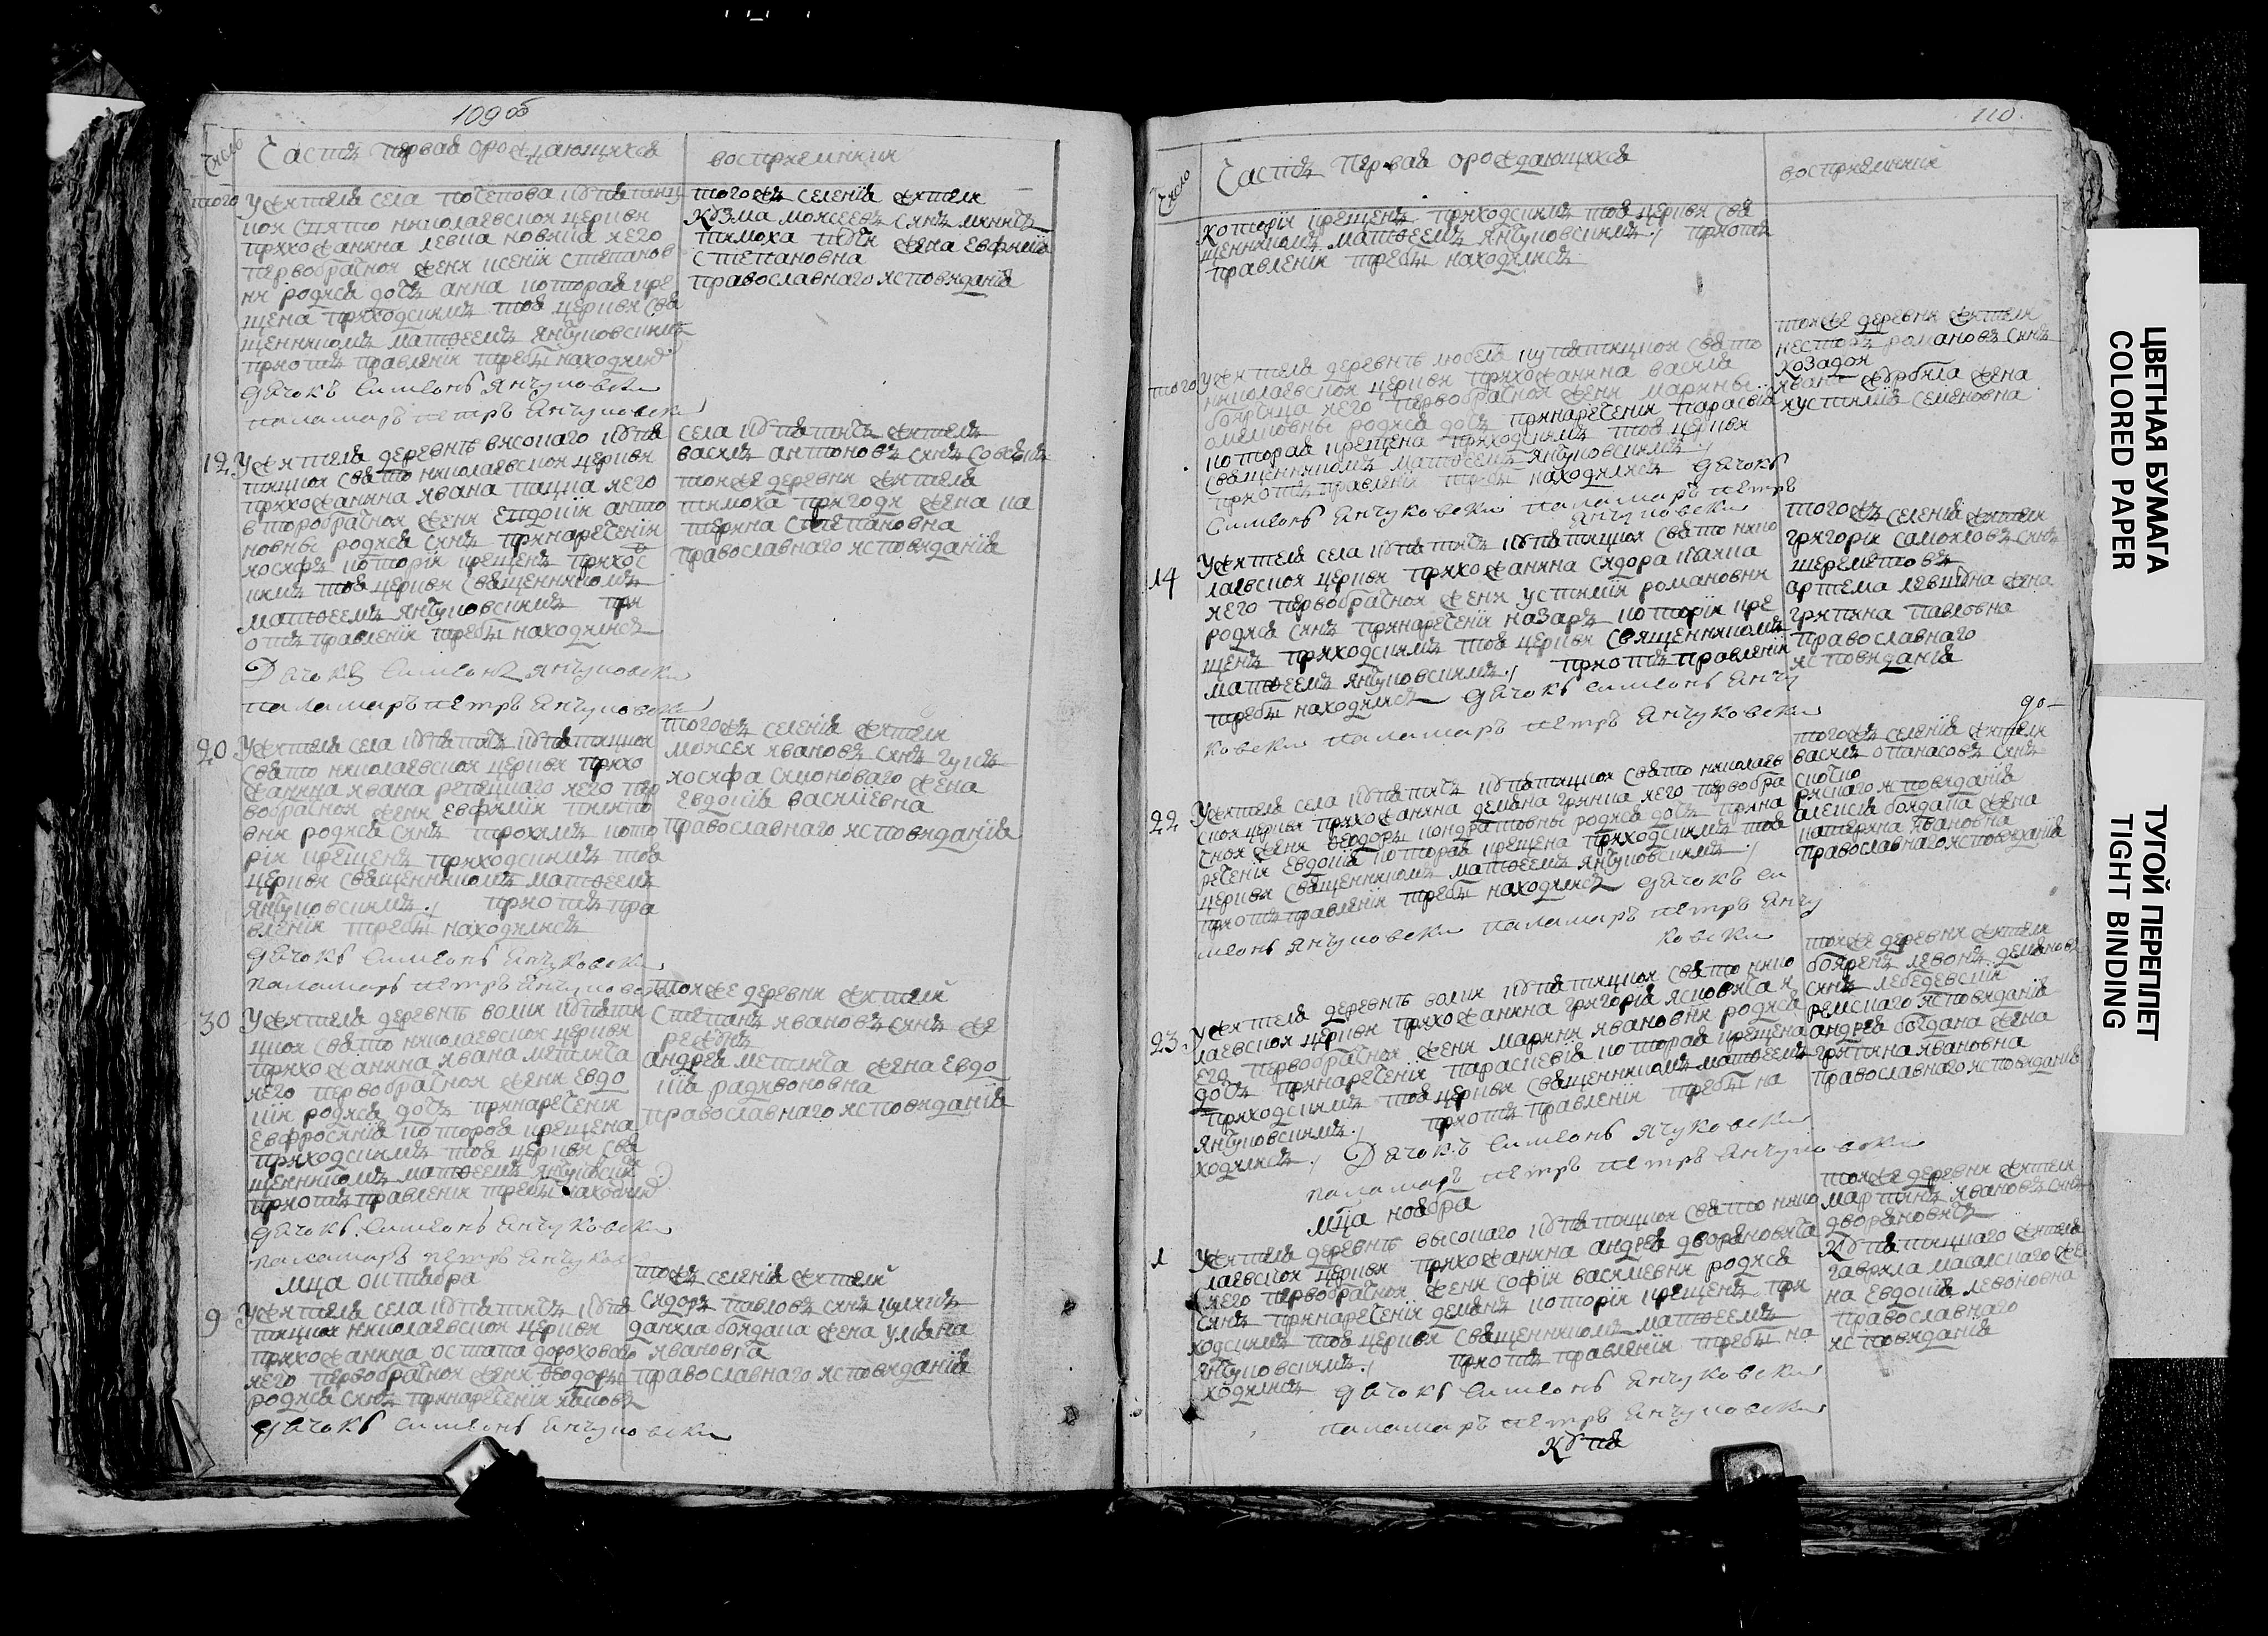 109 об
Число
Часть первая орождающихся
восприемники
того
у жителя села почепова купятиц
кой свято николаевской церкви
прихожанина левка новика иего
первобрачной жени ксении степанов
ни родися дочь анна которая кре
щена приходскимъ тоя церкви свя
щенникомъ матѳеемъ янчуковскимъ
приотъправлении требы находились
дячокъ симеонъ янчуковски
паламаръ петръ янчуковски
тогожъ селения жители
кузма моисеевъ синъ
тимоха жена евфимия
степановна
православного исповидания
12
У жителя деревнѣ високаго купя
тицкой свято николаевской церкви
прихожанина ивана пацка иего
второбрачной жени евдокии анто
новны родися синъ принаречении
иосифъ которий крещенъ приход
кимъ тоя церкви священникомъ
матѳеемъ янчуковскимъ при
отъправлении требы находились
Дячокъ симеонъ янчуковски
паламаръ петръ янчуковски
села купятичъ житель
василь антоновъ синъ
тояже деревни жителя
тимоха пригоди жена ка
терина степановна
православнаго исповидания
20
У жителя села купятичъ купятицкой
свято николаевской церкви прихо
жанина ивана репецкого иего пер
вобрачной жени евфимии
вни родися синъ трохимъ кото
рий крещенъ приходскимъ тоя
церкви священникомъ матѳеемъ
янчуковскимъ приотъпра
влении требы находились
дячокъ симеонъ янчуковски
паламаръ петръ янчуковски
тогожъ селения жители
моисей ивановъ синъ
иосифа симоноваго жена
евдокия василиевна
православнаго исповидания
30
У жителя деревнѣ волки купяти
цкой свято николаевской церкви
прихожанина ивана метлича
иего первобрачной жени евдо
кии родися дочь принаречении
евфросиния котороя крещена
приходскимъ тоя церкви свя
щенникомъ матѳеемъ янчуковским
приотъправлении требы находились
дячокъ симеонъ янчуковски
паламаръ петръ янчуков
тояже деревни жители
степанъ ивановъ синъ же
ребукъ
андрея метлича жена евдо
кия радивоновна
православнаго исповидания
мца октября
9
У жителя села купятичъ купя
тицкой николаевской церкви
прихожанина остапа дороховаго
иего первобрачной жени ѳеодоры
родися синъ принаречении яковъ
дячокъ симеонъ янчуковски
тожъ селения жители
сидоръ павловъ синъ куликъ
данила боядака жена уляна
ивановна
православнаго исповидания
110
Число
Часть Первая орождающихся
восприемники
которий крещенъ приходскимъ тоя церкви свя
щенникомъ матѳеемъ янчуковскимъ приотъ
правлении требы находились
того
у жителя деревнѣ любеля купятицкой свято
николаевской церкви прихожанина васила
бояреца иего первобрачной жени марины
омеляновны родися дочь принаречении парасвия
которая крещена приходскимъ тоя церкви
священникомъ матѳеемъ янчуковскимъ
приотъправлении требы находились дячокъ
симеонъ янчуковски паламаръ петръ
янчуковски
тояже деревни жители
несторъ романовъ синъ
козадой
ивана журбила жена
иустимия семеновна
14
У жителя села купятичъ купятицкой свято нико
лаевской церкви прихожанина сидора
иего первобрачной жени устимии романовни
родися синъ принаречении назаръ которий кре
щенъ приходскимъ тоя церкви священникомъ
матѳеемъ янчуковскимъ приотъправлении
требы находились дячокъ симеонъ янчу
ковски паламаръ петръ янчуковски
тогожъ селения жители
григорий самоиловъ синъ
шереметовъ
артема левшука жена
грипина павловна
православнаго
исповидания
22
У жителя села купятичъ купятицкой свято николаев
ской церкви прихожанина демяна гринка иего первобра
чной жени ѳеодоры кондратовны родися дочь прина
речении евдокия которая крещена приходскимъ тоя
церкви священникомъ матѳеемъ янчуковскимъ
приотъправлении требы находились дячокъ си
меонъ янчуковски паламаръ петръ янчу
ковски
тогожъ селения жители
василь опанасовъ синъ
римскаго исповидания
алексия боядака жена
катерина ивановна
православнаго исповидания
23
У жителя деревнѣ волки купятицкой свято нико
лаевской церкви прихожанина григория и
его первобрачной жени марини ивановни родися
дочь принаречении параскевия которая крещена
приходскимъ тоя церкви священникомъ матѳеемъ
янчуковскимъ приотъправлении требы на
ходились Дячокъ симеонъ янчуковски
паламаръ петръ петръ янчуковски
тояже деревни жители
бояренъ левонъ демяновъ
синъ лебедевский
римскаго исповидания
андрея богдана жена
грипина ивановна
православнаго исповидания
мца ноября
1
У жителя деревнѣ высокаго купятицкой свято нико
лаевской церкви прихожанина андрея двораковича
иего первобрачной жени софии василиевни родися
синъ принаречении демянъ которий крещенъ при
ходскимъ тоя церкви священникомъ матѳеемъ
янчуковскимъ приотъправлении требы на
ходились дячокъ симеонъ янчуковски
паламаръ петръ янчуковски
тояже деревни жители
мартинъ ивановъ синъ
двораковичъ
купятицкаго жителя
гаврила масалскаго же
на евдокия левоновна
православнаго
исповидания
Купя
ЦВЕТНАЯ БУМАГА
COLORED PAPER
ТУГОЙ ПЕРЕПЛЕТ
TIGHT BINDING